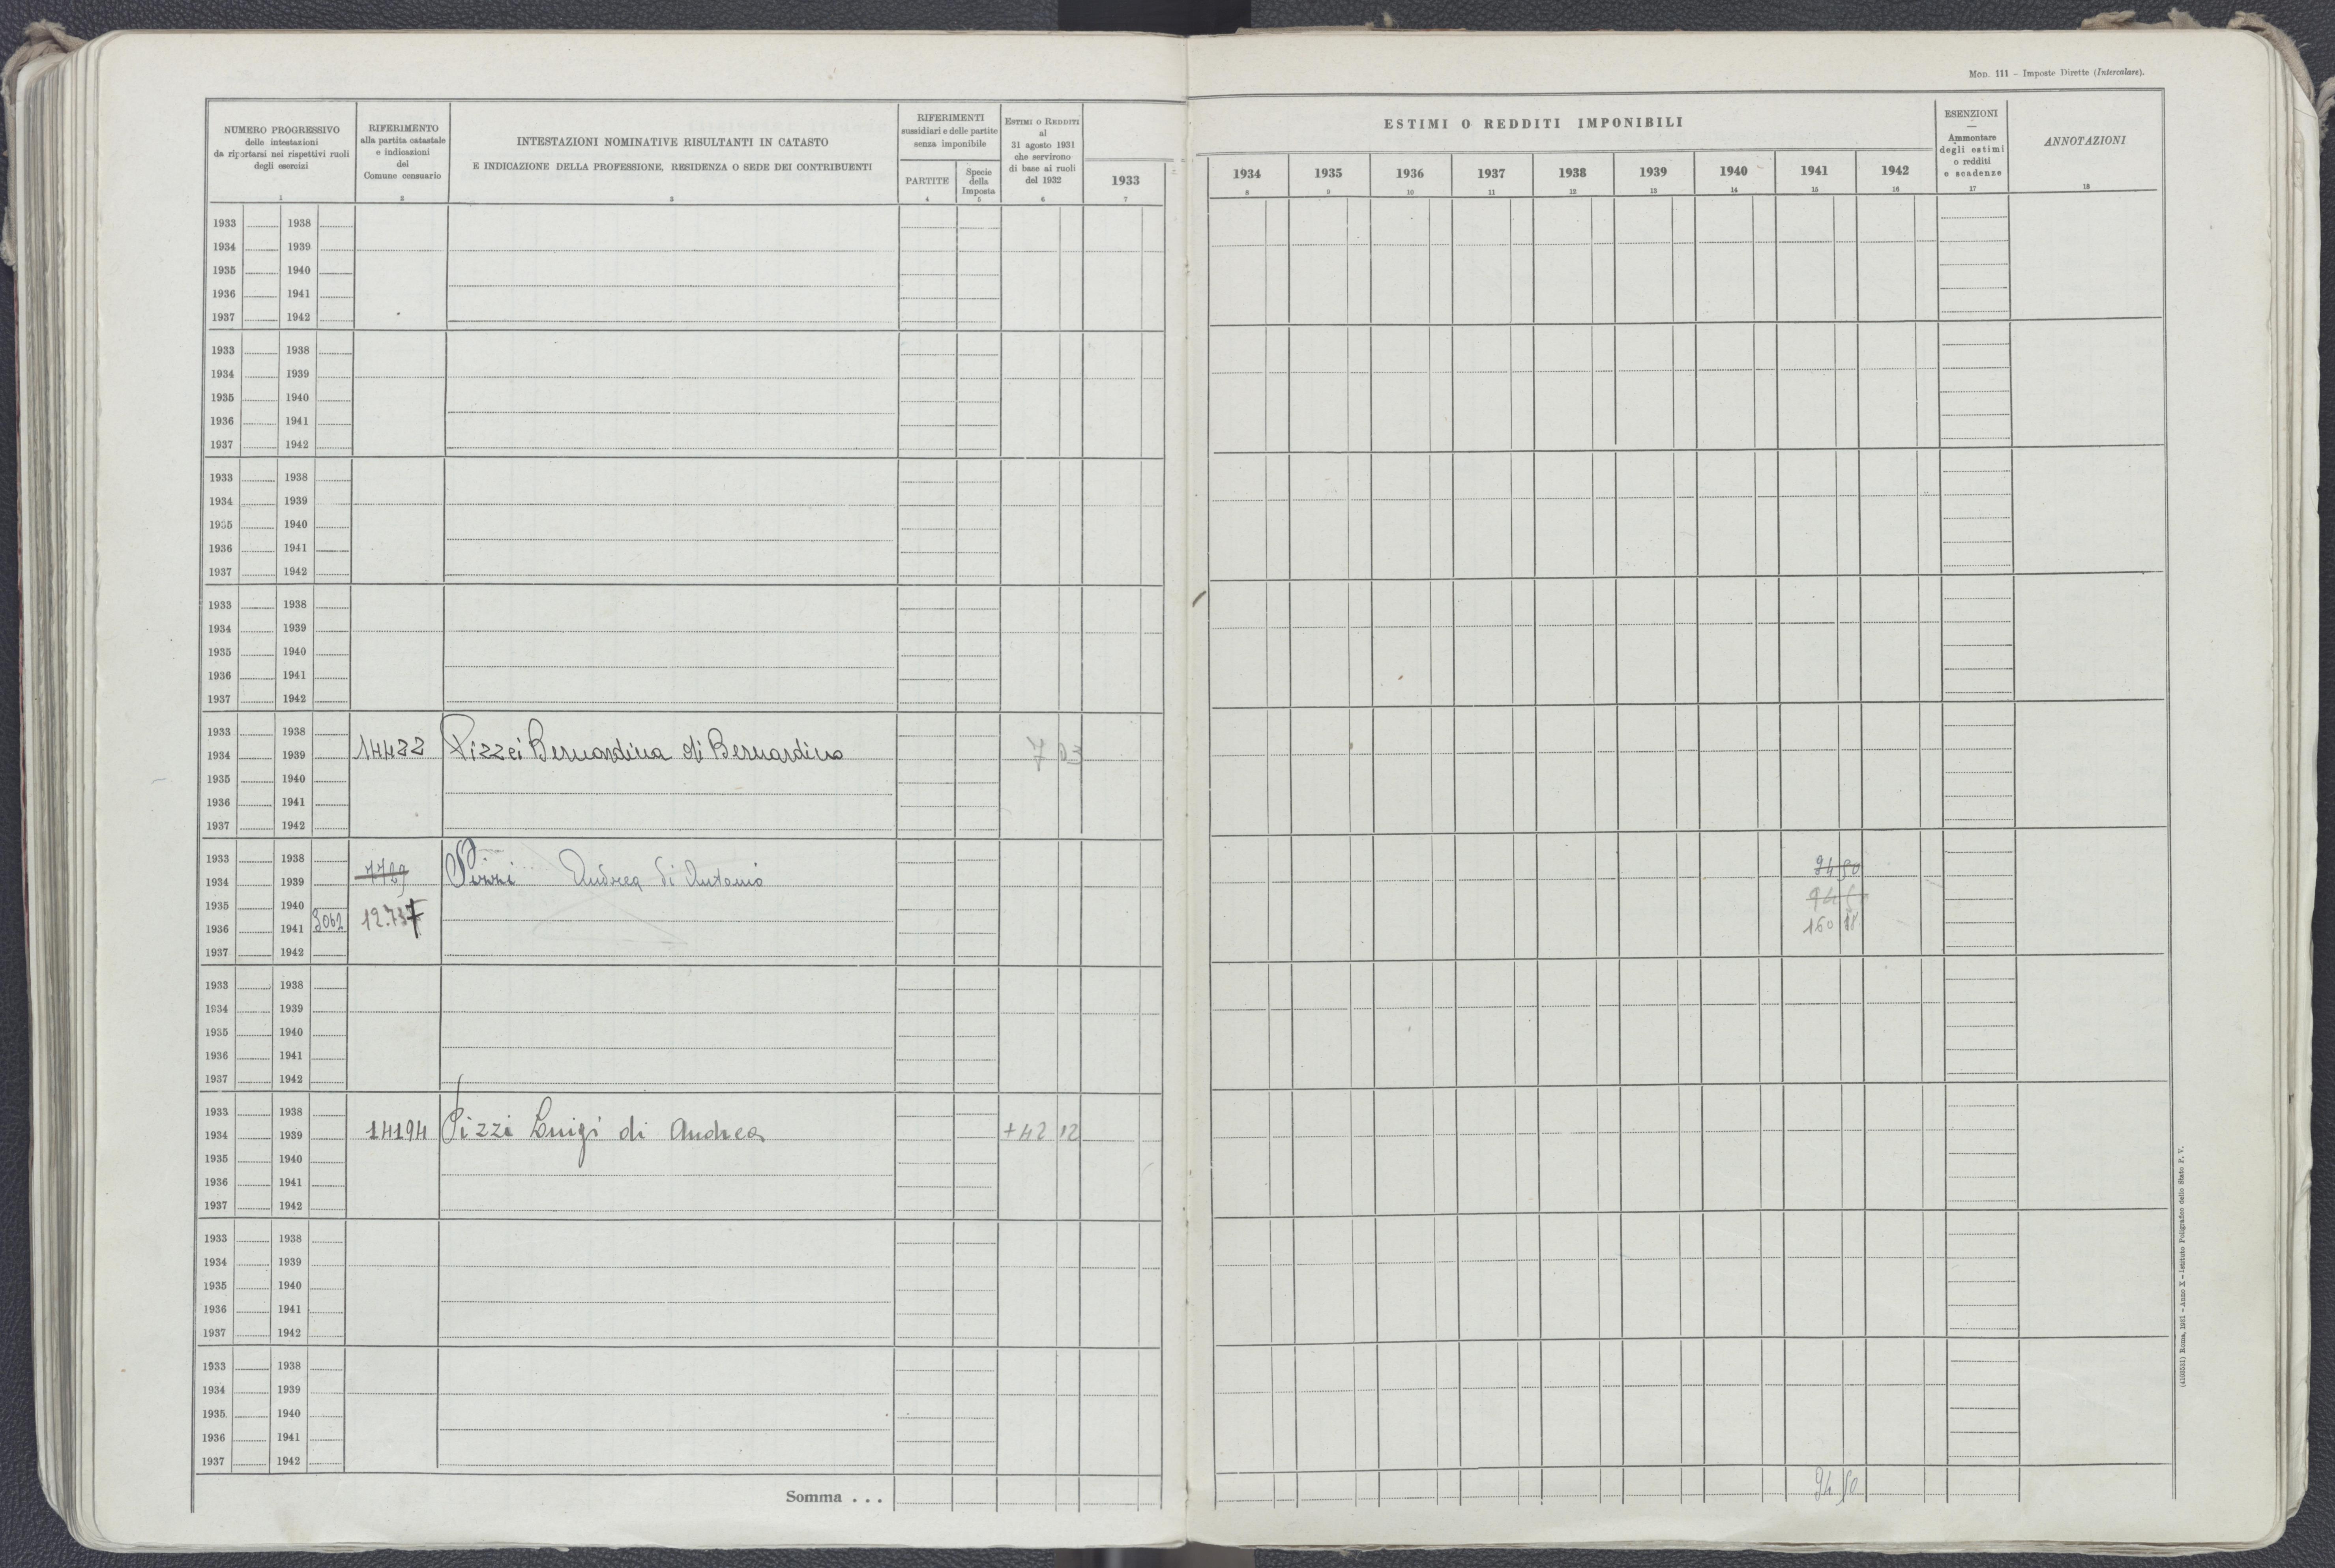 Mod. 111 - Imposte Dirette (Intercalare).
NUMERO PROGRESSIVO
delle intestazioni
da riportarsi nei rispettivi ruoli
degli esercizi
1
RIFERIMENTO
alla partita catastale
e indicazioni
del
Comune censuario
2
INTESTAZIONI NOMINATIVE RISULTANTI IN CATASTO
E INDICAZIONE DELLA PROFESSIONE, RESIDENZA O SEDE DEI CONTRIBUENTI
3
RIFERIMENTI
sussidiari e delle partite
senza imponibile
PARTITE
4
Specie
della
Imposta
5
Estimi o Redditi
al
31 agosto 1931
che servirono
di base ai ruoli
del 1932
6
1933
7
ESTIMI O REDDITI IMPONIBILI
1934 1935 1936 1937 1938 1939 1940 1941 1942
8 9 10 11 12 13 14 15 16
ESENZIONI
Ammontare
degli estimi
o redditi
e scadenze
17
ANNOTAZIONI
18
1933 1938
1934 1939
1935 1940
1936 1941
1937 1942
1933 1938
1934 1939
1935 1940
1936 1941
1937 1942
1933 1938
1934 1939
1935 1940
1936 1941
1937 1942
1933 1938
1934 1939
1935 1940
1936 1941
1937 1942
1933 1938
1934 1939 14422 Pizzei Bernardina di Bernardino 7 03
1935 1940
1936 1941
1937 1942
1933 1938
1934 1939 7729 Pizzi Andrea di Antonio 94 50
1935 1940
1936 1941 3062 12.737 160 18
1937 1942
1933 1938
1934 1939
1935 1940
1936 1941
1937 1942
1933 1938
1934 1939 14194 Pizzi Luigi di Andrea +42 12
1935 1940
1936 1941
1937 1942
1933 1938
1934 1939
1935 1940
1936 1941
1937 1942
1933 1938
1934 1939
1935 1940
1936 1941
1937 1942
Somma . . . 94 50
(4103551) Roma, 1931 - Anno X - Istituto Poligrafico dello Stato P. V.